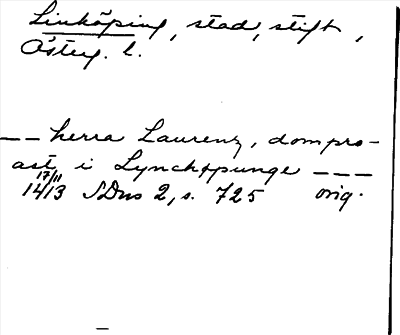 Linköping, stad, stift,
Österg. l.
-- herra Laurenz, dompro-
ast i Lynchøpunge ---
17/11
1413 SDns 2, s. 725 orig.